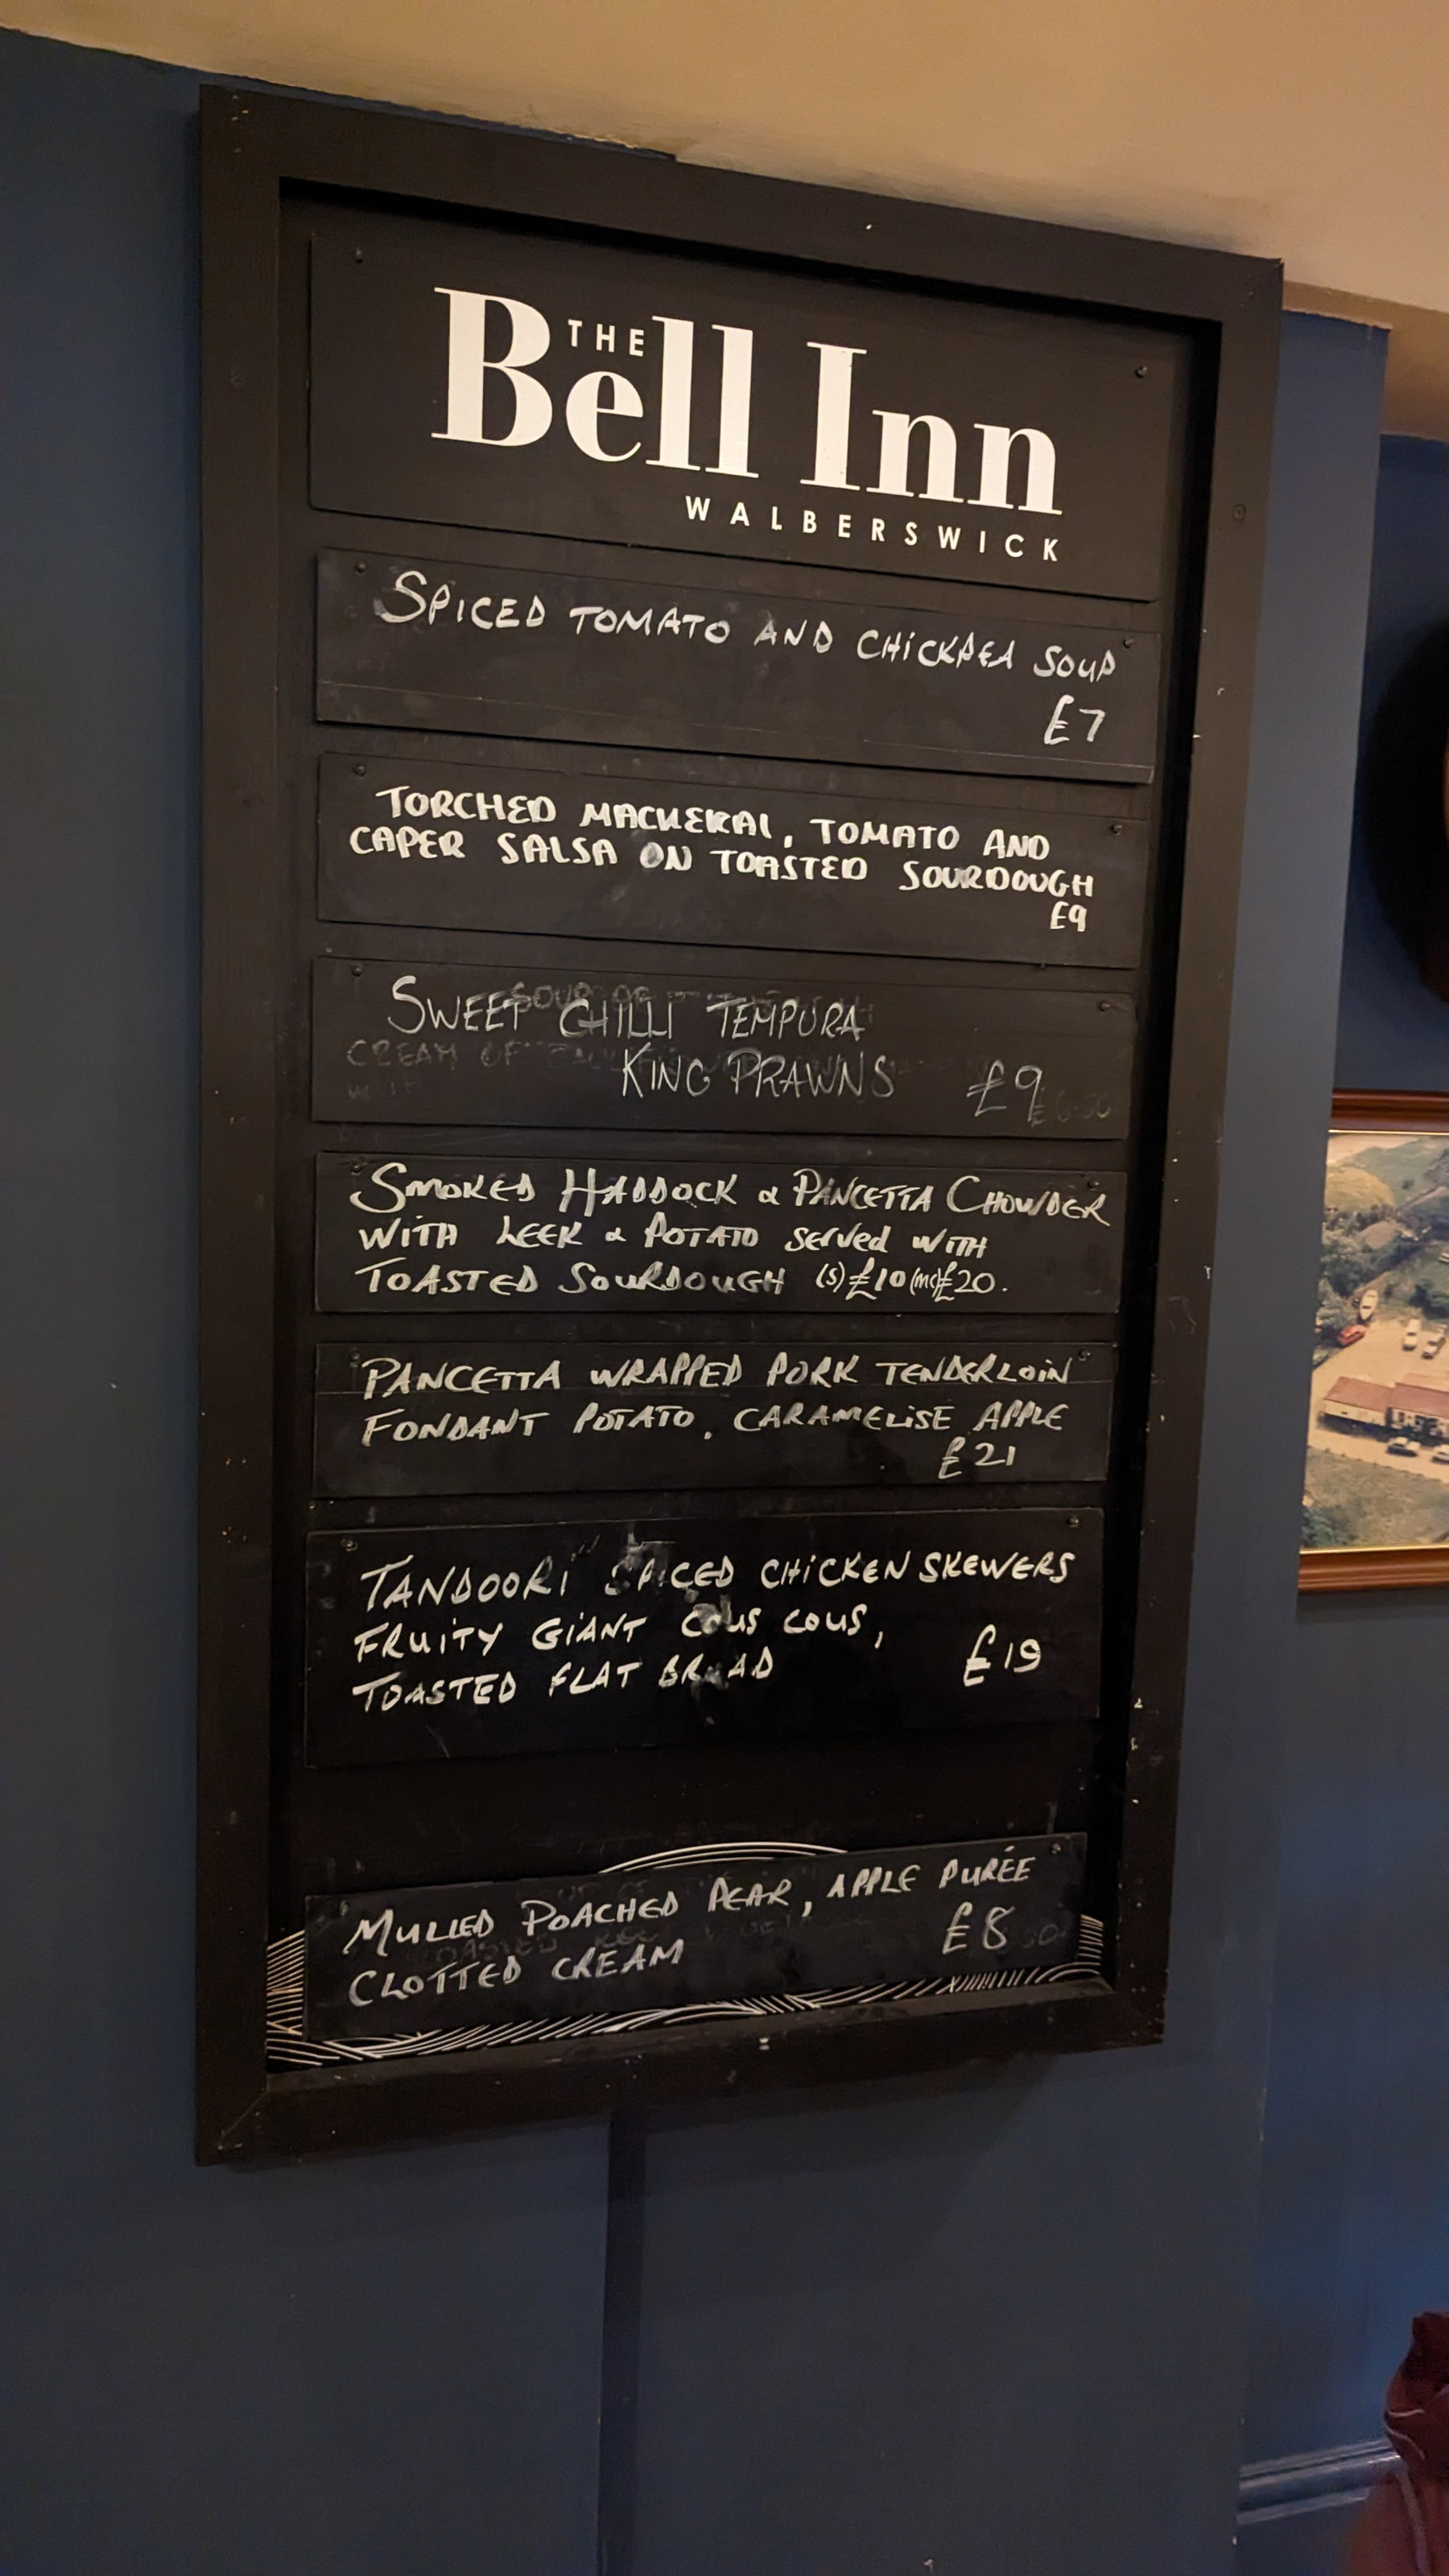 THE
Bell Inn
WALBERSWICK
SPICED TOMATO AND CHICKPEA SOUP
£7
TORCHED MACKERAL, TOMATO AND
CAPER SALSA ON TOASTED SOURDOUGH
£9
SWEET CHILLI TEMPURA
KING PRAWNS £9
SMOKED HADDOCK & PANCETTA CHOWDER
WITH LEEK & POTATO SERVED WITH
TOASTED SOURDOUGH (S) £10 (MC) £20.
PANCETTA WRAPPED PORK TENDERLOIN
FONDANT POTATO, CARAMELISE APPLE
£21
TANDOORI SPICED CHICKEN SKEWERS
FRUITY GIANT COUS COUS,
TOASTED FLAT BREAD £19
MULLED POACHED PEAR, APPLE PURÉE
CLOTTED CREAM £8